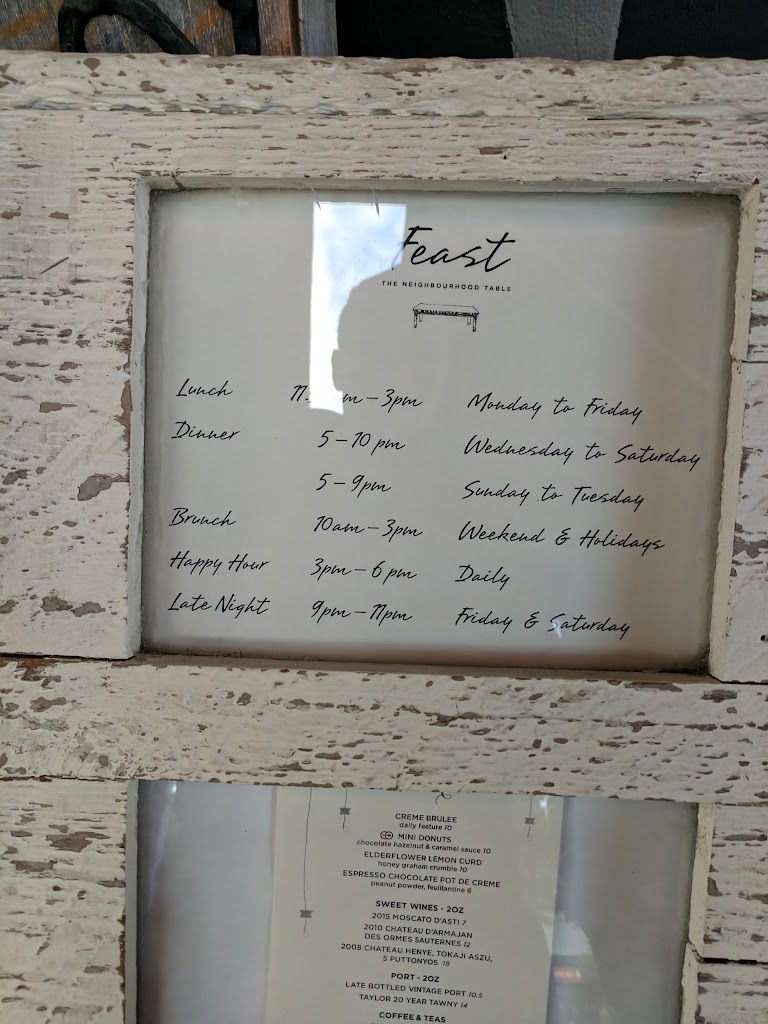 Feast
THE NEIGHBOURHOOD TABLE
Lunch – 3pm Monday to Friday
Dinner 5 – 10 pm Wednesday to Saturday
5 – 9pm Sunday to Tuesday
Brunch 10am – 3pm Weekend & Holidays
Happy Hour 3pm – 6 pm Daily
Late Night 9pm – 11pm Friday & Saturday
CREME BRULEE
daily feature 10
MINI DONUTS
chocolate hazelnut & caramel sauce 10
ELDERFLOWER LEMON CURD
honey graham crumble 10
ESPRESSO CHOCOLATE POT DE CREME
peanut powder, feuillantine 6
SWEET WINES - 2OZ
2015 MOSCATO D'ASTI 7
2010 CHATEAU D'ARMAJAN
DES ORMES SAUTERNES 12
2008 CHATEAU HENYE, TOKAJI ASZU,
5 PUTTONYOS 18
PORT - 2OZ
LATE BOTTLED VINTAGE PORT 10.5
TAYLOR 20 YEAR TAWNY 14
COFFEE & TEAS